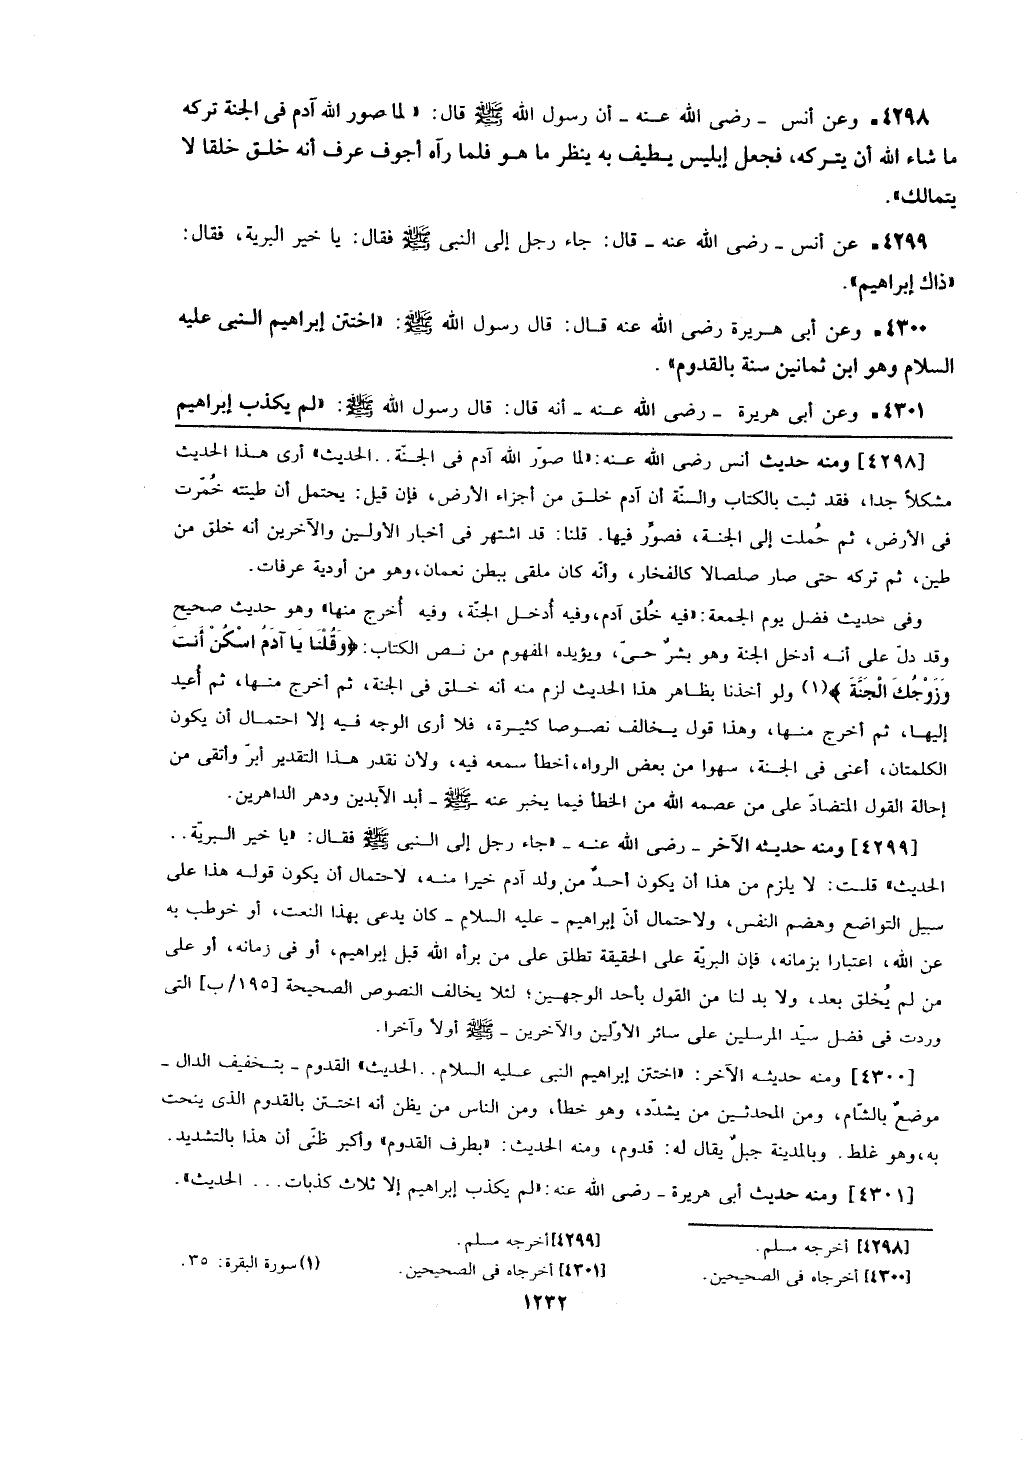 ٤٢٩٨. وعن أنس - رضى الله عنه - أن رسول الله ﷺ قال: « لما صور الله آدم فى الجنة تركه
ما شاء الله أن يتركه، فجعل إبليس يطيف به ينظر ما هو فلما رآه أجوف عرف أنه خلق خلقا لا
يتمالك».
٤٢٩٩. عن أنس - رضى الله عنه - قال: جاء رجل إلى النبى ﷺ فقال: يا خير البرية، فقال:
«ذاك إبراهيم».
٤٣٠٠. وعن أبى هريرة رضى الله عنه قال: قال رسول الله ﷺ: «اختتن إبراهيم النبى عليه
السلام وهو ابن ثمانين سنة بالقدوم» .
٤٣٠١. وعن أبى هريرة - رضى الله عنه - أنه قال: قال رسول الله ﷺ: «لم يكذب إبراهيم
[٤٢٩٨] ومنه حديث أنس رضى الله عنه:«لما صوّر الله آدم فى الجنّة..الحديث» أرى هذا الحديث
مشكلاً جدا، فقد ثبت بالكتاب والسنّة أن آدم خلق من أجزاء الأرض، فإن قيل: يحتمل أن طينته خُمّرت
فى الأرض، ثم حُملت إلى الجنة، فصوِّر فيها. قلنا: قد اشتهر فى أخبار الأولين والآخرين أنه خلق من
طين، ثم تركه حتى صار صلصالا كالفخار، وأنّه كان ملقى ببطن نعمان،وهو من أودية عرفات.
وفى حديث فضل يوم الجمعة:«فيه خُلق آدم،وفيه أُدخل الجنّة، وفيه أُخرج منها» وهو حديث صحيح
وقد دلّ على أنه أدخل الجنة وهو بشرٌ حىّ، ويؤيده المفهوم من نص الكتاب: ﴿وَقُلْنَا يَا آدَمُ اسْكُنْ أَنتَ
وَزَوْجُكَ الْجَنَّةَ ﴾(١) ولو أخذنا بظاهر هذا الحديث لزم منه أنه خلق فى الجنة، ثم أخرج منها، ثم أُعيد
إليها، ثم أخرج منها، وهذا قول يخالف نصوصا كثيرة، فلا أرى الوجه فيه إلا احتمال أن يكون
الكلمتان، أعنى فى الجنة، سهوا من بعض الرواه،أخطأ سمعه فيه، ولان نقدر هذا التقدير أبرّ وأتقى من
إحالة القول المتضادّ على من عصمه الله من الخطأ فيما يخبر عنه ﷺ - أبد الآبدين ودهر الداهرين.
[٤٢٩٩] ومنه حديثه الآخر - رضى الله عنه - «جاء رجل إلى النبى ﷺ فقال: «يا خير البريّة..
الحديث» قلت: لا يلزم من هذا أن يكون أحدٌ من ولد آدم خيرا منه، لاحتمال أن يكون قوله هذا على
سبيل التواضع وهضم النفس، ولاحتمال أنّ إبراهيم - عليه السلام - كان يدعى بهذا النعت، أو خوطب به
عن الله، اعتبارا بزمانه، فإن البريّة على الحقيقة تطلق على من برأه الله قبل إبراهيم، أو فى زمانه، أو على
من لم يُخلق بعد، ولا بد لنا من القول بأحد الوجهين؛ لئلا يخالف النصوص الصحيحة [١٩٥/ب] التى
وردت فى فضل سيّد المرسلين على سائر الأوّلين والآخرين - ﷺ أولاً وآخرا.
[٤٣٠٠] ومنه حديثه الآخر: «اختتن إبراهيم النبى عليه السلام..الحديث» القدوم - بتخفيف الدال -
موضعٌ بالشّام، ومن المحدثين من يشدّد، وهو خطأ، ومن الناس من يظن أنه اختتن بالقدوم الذى ينحت
به،وهو غلط. وبالمدينة جبلٌ يقال له: قدوم، ومنه الحديث: «بطرف القدوم» وأكبر ظنّى أن هذا بالتشديد.
[٤٣٠١] ومنه حديث أبى هريرة - رضى الله عنه:«لم يكذب إبراهيم إلا ثلاث كذبات... الحديث».
[٤٢٩٨] أخرجه مسلم.
[٤٢٩٩]أخرجه مسلم.
[٤٣٠٠] أخرجاه فى الصحيحين.
[٤٣٠١] أخرجاه فى الصحيحين.
(١)سورة البقرة: ٣٥.
١٢٣٢